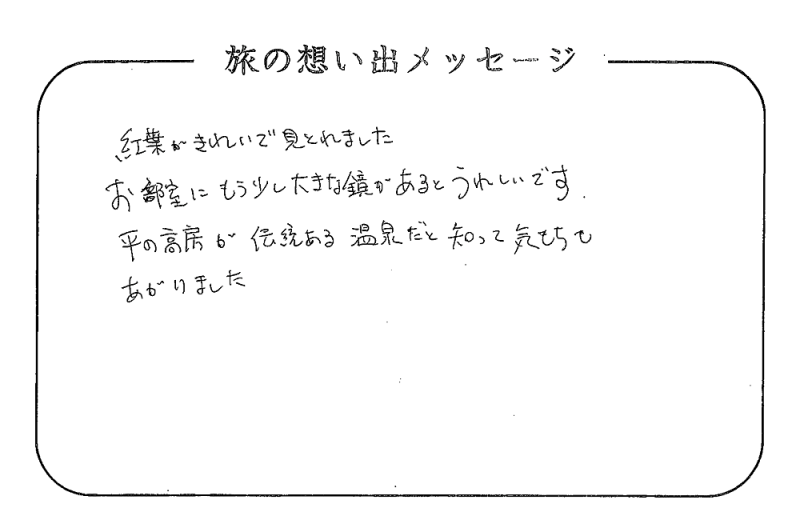 旅の想い出メッセージ
紅葉がきれいで見とれました
お部室にもう少し大きな鏡があるとうれしいです.
平の高房が伝統ある温泉だと知って気もちも
あがりました